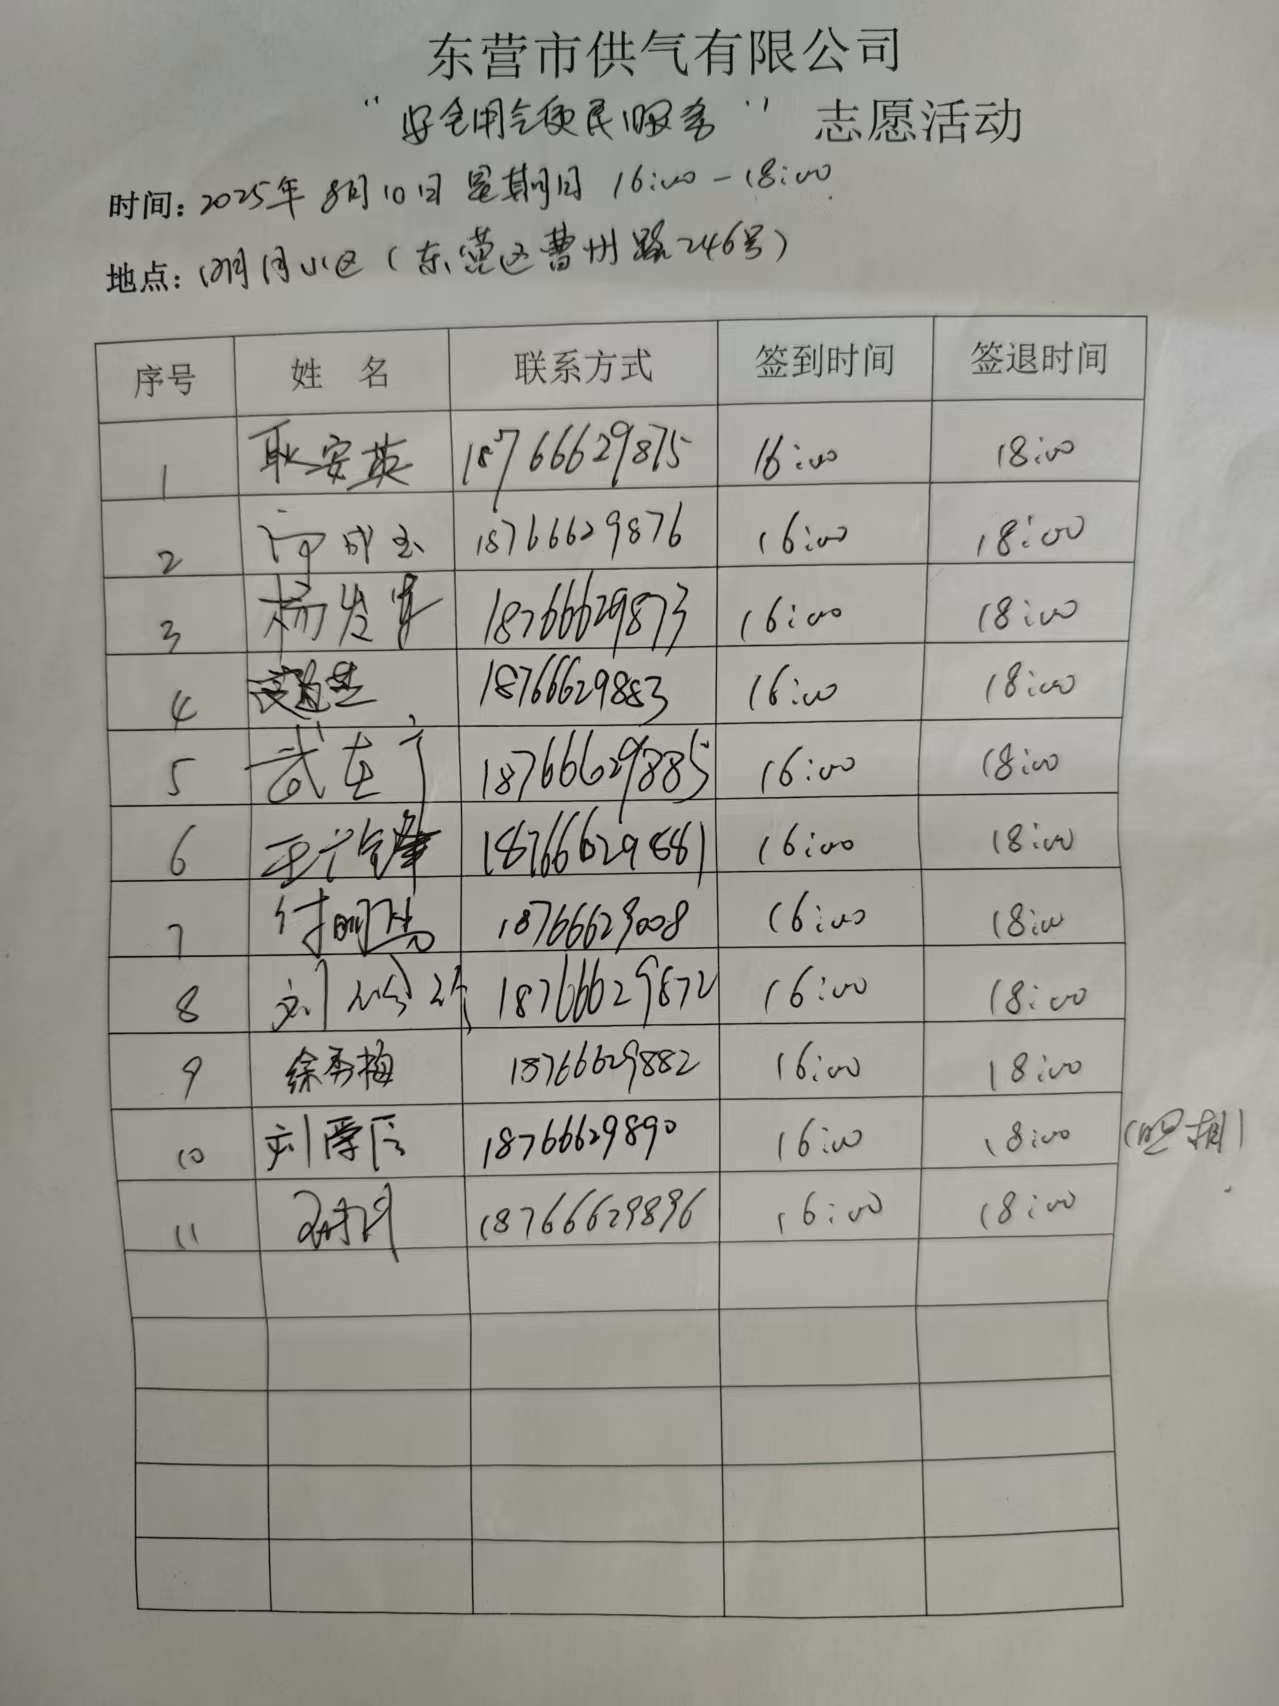 东营市供气有限公司
“安全用气便民服务” 志愿活动
时间：2025年8月10日 星期日 16:00-18:00
地点：明月小区（东营区曹州路246号）
序号 姓名 联系方式 签到时间 签退时间
1 耿安英 18766629875 16:00 18:00
2 18766629876 16:00 18:00
3 杨发军 18766629873 16:00 18:00
4 18766629883 16:00 18:00
5 武在 18766629885 16:00 18:00
6 王 18766629881 16:00 18:00
7 付明 18766629008 16:00 18:00
8 刘 18766629872 16:00 18:00
9 徐秀梅 18766629882 16:00 18:00
10 刘 18766629890 16:00 18:00 （照相）
11 18766629896 16:00 18:00